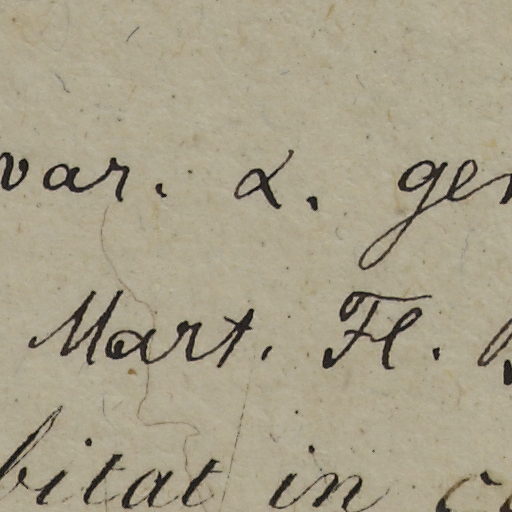 var. α. gen
Mart. Fl.
bitat in